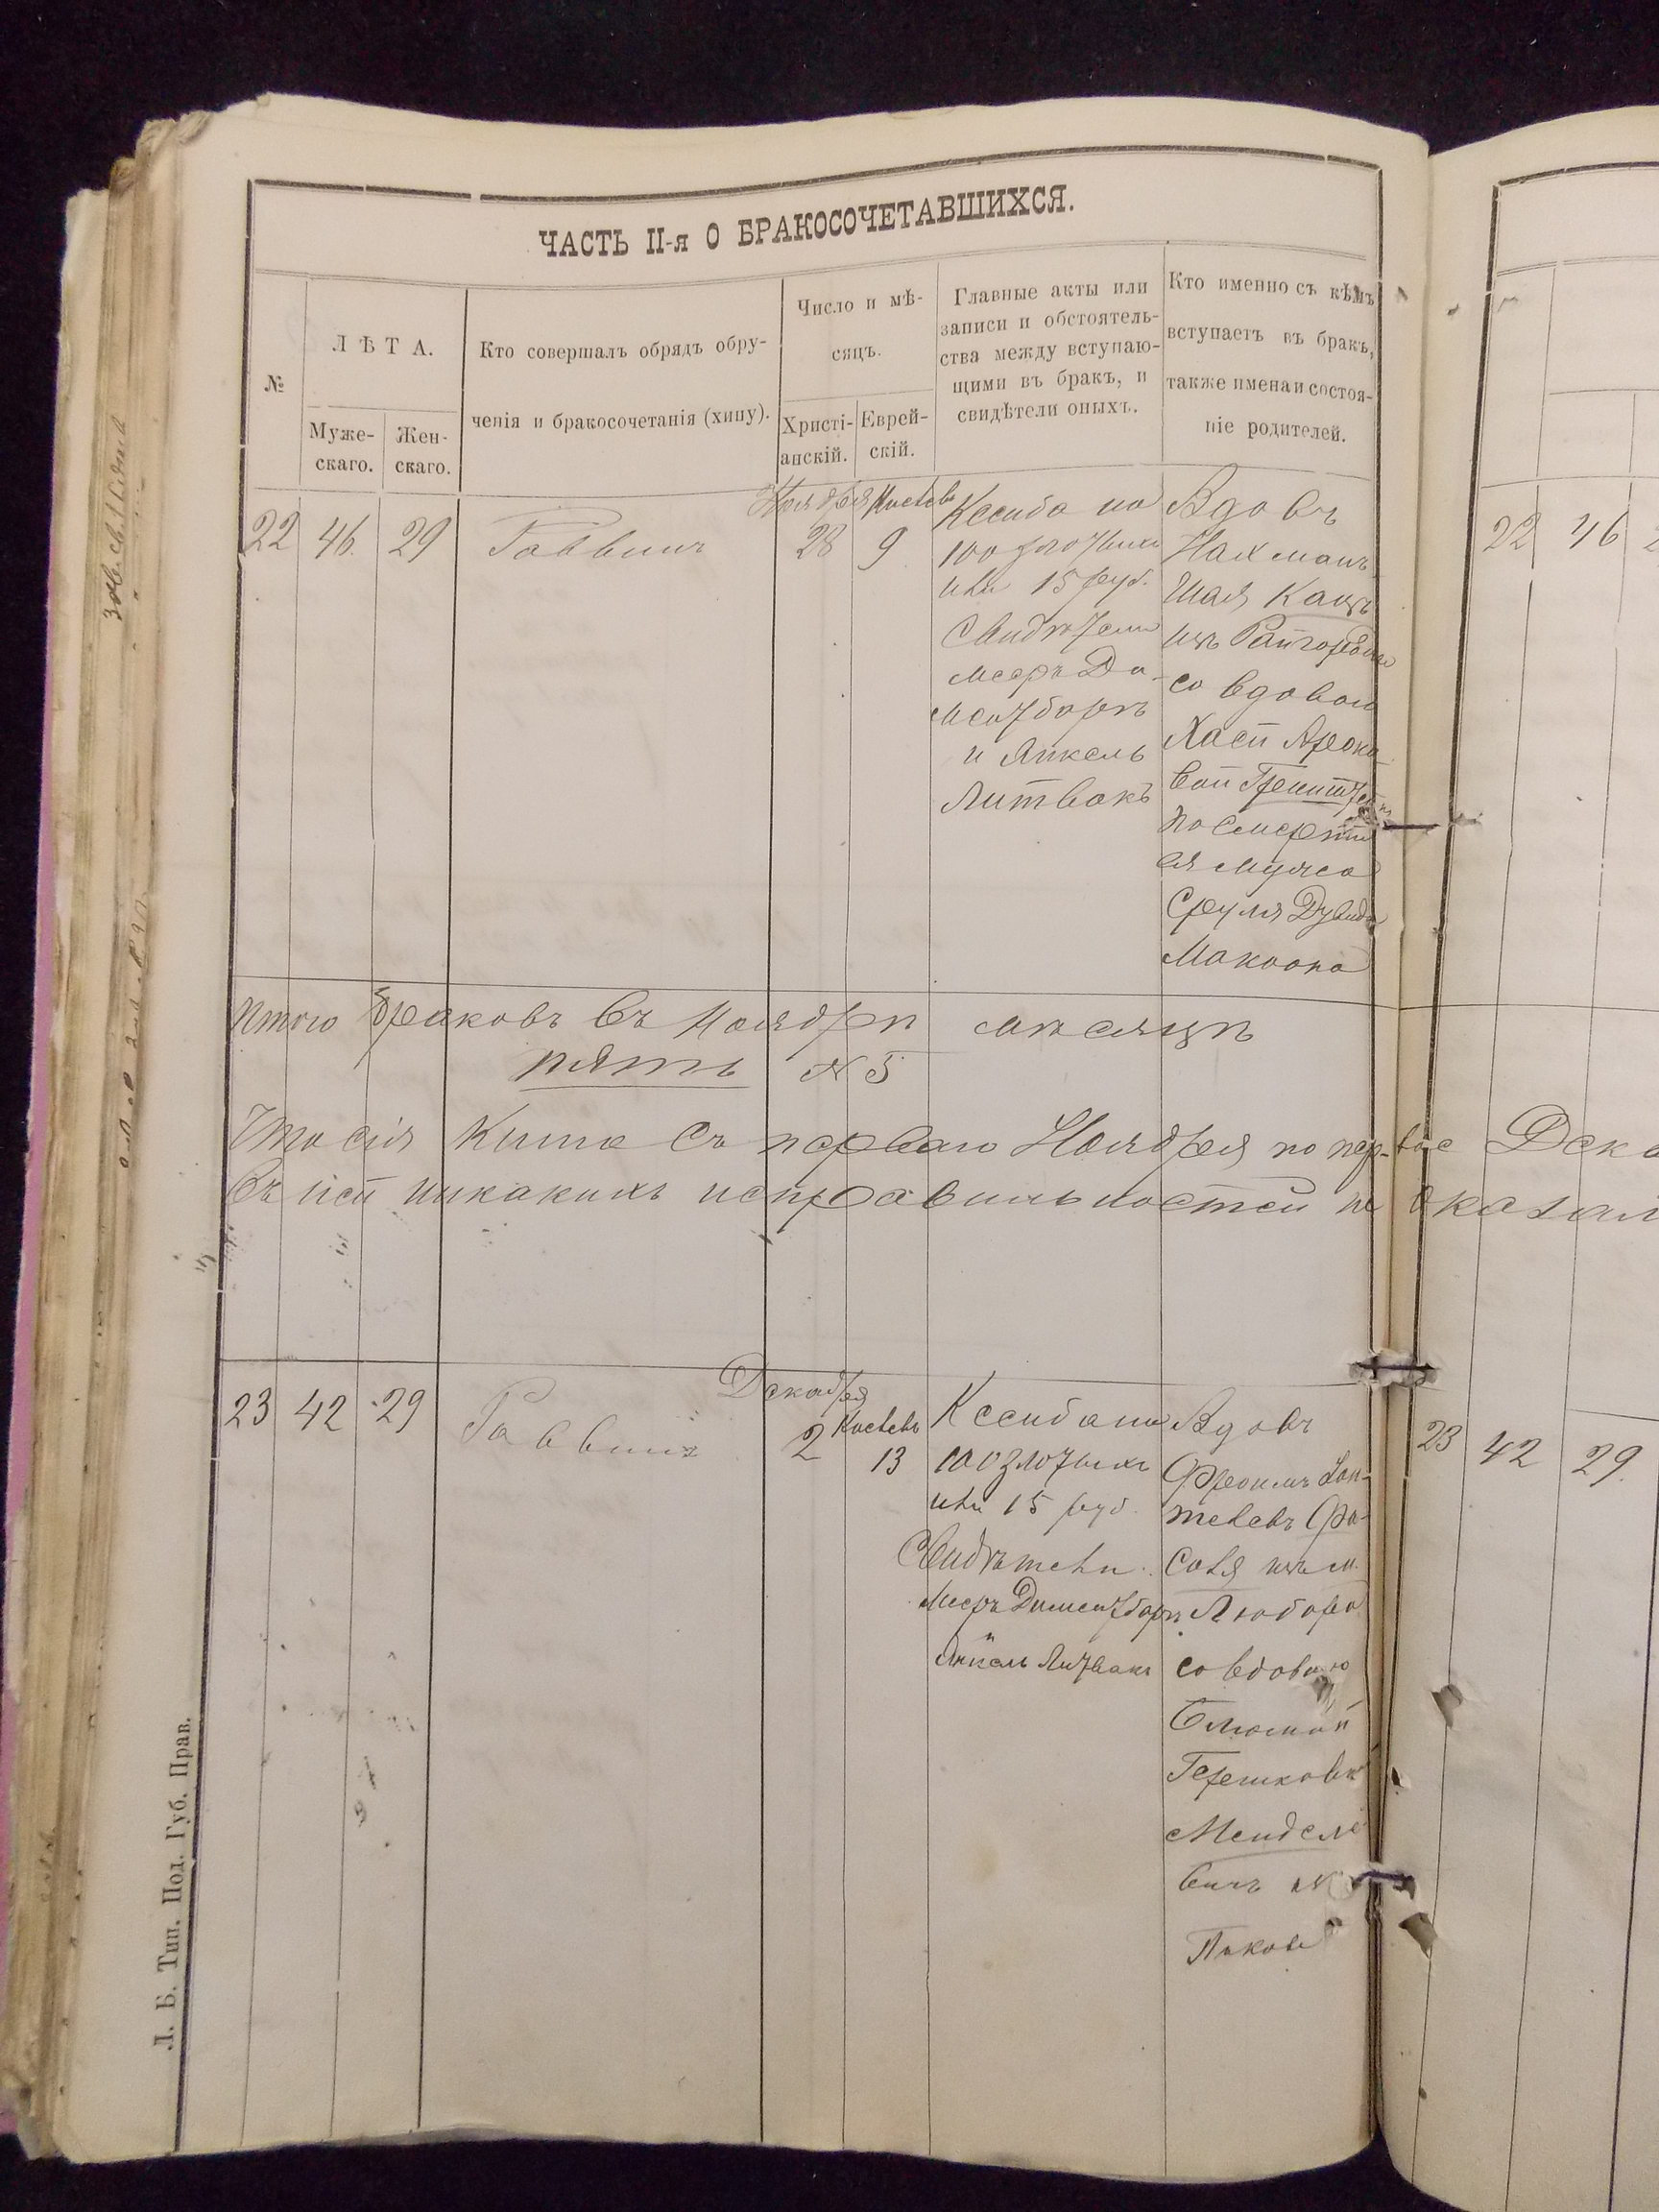 ЧАСТЬ II-я О БРАКОСОЧЕТАВШИХСЯ.
№
ЛѢТА.
Муже-
скаго.
Жен-
скаго.
Кто совершалъ обрядъ обру-
ченія и бракосочетанія (хипу).
Число и мѣ-
сяцъ.
Христі-
анскій.
Еврей-
скій.
Главные акты или
записи и обстоятель-
ства между вступаю-
щими въ бракъ, и
свидѣтели оныхъ.
Кто именно съ кѣмъ
вступаетъ въ бракъ,
также имена и состоя-
ніе родителей.
22
46
29
Раввинъ
Ноября
28
Кислевъ
9
Ксиба на
100 злотыхъ
или 15 руб.
Свидѣтели
Мееръ Ди-
ментбаргъ
и Янкель
Литвакъ
Вдовъ
Нахманъ
Шая Кацъ
изъ Райгородка
со вдовою
Хасей Ароно-
вой
по смерти
ея мужа
Сруля Дувида
Итого браковъ въ Ноябрѣ мѣсяцѣ
пять № 5
Что сія Книга съ перваго Ноября по первое Дека
въ ней никакихъ неправильностей не оказал
23
42
29
Раввинъ
Декабря
2
Кислевъ
13
Ксиба на
100 злотыхъ
или 15 руб.
Свидѣтели
Мееръ Диментбаргъ
и
Янкель Литвакъ
Вдовъ
Фроимъ
изъ м.
Любара
со вдовою
Блюмой
Гершковой
Менделе
вичъ
Пикова
22
46
23
42
29.
Л. Б. Тип. Под. Губ. Прав.